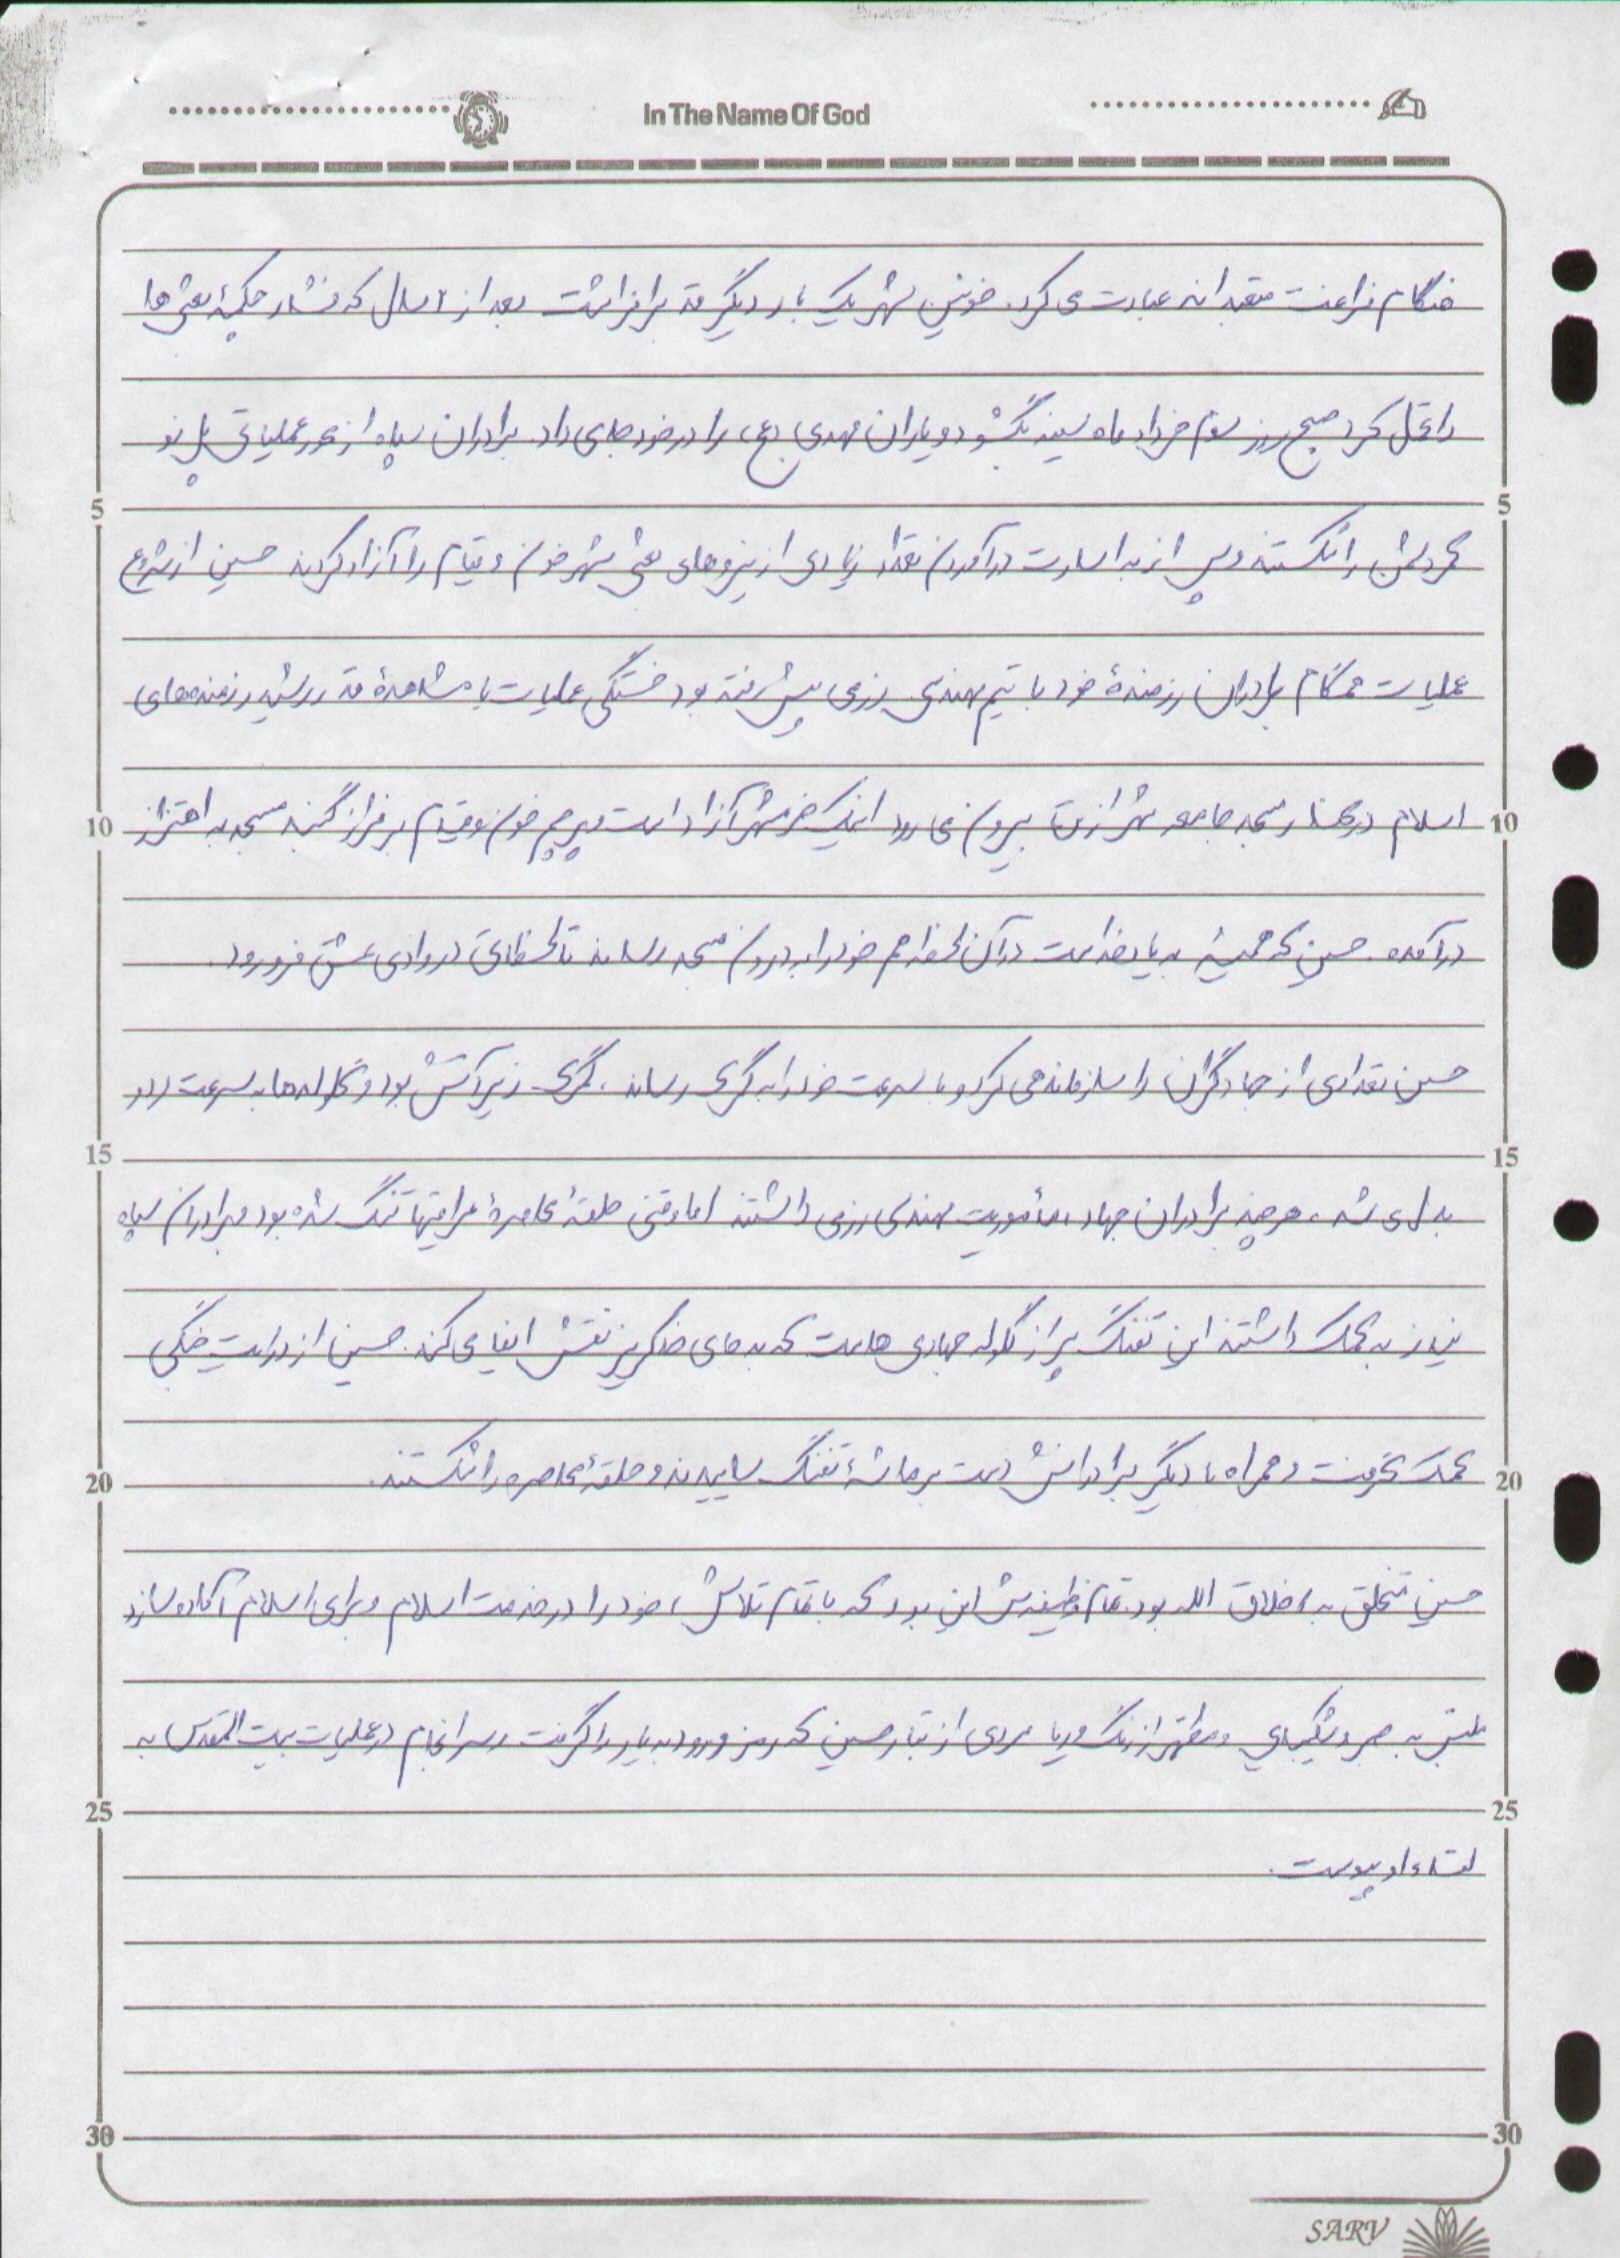 In The Name Of God
هنگام فراغت متعبدانه عبادت می کرد. خونین شهر یک بار دیگر قد برافراشت بعد از ۲ سال که فشار چکمهٔ بعثی ها
را تحمل کرد صبح روز سوم خرداد ماه سینه بگشود و یاران مهدی (عج) را در خود جای داد. برادران سپاه از محور عملیاتی پل نو
گمرک را شکستند و پس از به اسارت درآوردن تعداد زیادی از نیروهای بعثی شهر خون و قیام را آزاد کردند حسین از شروع
عملیات همگام برادران رزمندهٔ خود با تیم مهندسی رزمی پیش رفته بود خستگی عملیات با مشاهدهٔ قد رشید رزمنده های
اسلام در کنار مسجد جامعه شهر از تن بیرون می رود اینک خرمشهر آزاد است و پرچم خون و قیام بر فراز گنبد مسجد به اهتزاز
درآمده. حسین که همیشه به یاد خداست در آن لحظه هم خود را به درون مسجد رساند تا لحظاتی در وادی عشق فرو رود.
حسین تعدادی از جهادگران را سازماندهی کرد و با سرعت خود را به گمرک رساند، گمرک زیر آتش بود و گلوله ها به سرعت رد و
بدل می شد، هرچند برادران جهاد، مأموریت مهندسی رزمی داشتند اما وقتی حلقهٔ محاصرهٔ عراقیها تنگ شده بود و برادران سپاه
نیاز به کمک داشتند این تفنگ پر از گلوله جهادی هاست که به جای خاکریز نقش ایفا می کند. حسین از درایت جنگی
کمک گرفت و همراه با دیگر برادرانش دست بر ماشهٔ تفنگ ساییدند و حلقهٔ محاصره را شکستند.
حسین متخلق به اخلاق الله بود. تمام وظیفه اش این بود که با تمام تلاش، خود را در خدمت اسلام و برای اسلام آماده سازد
ملبس به صبر و شکیبایی و مطهر از رنگ و ریا مردی از تبار حسین که رمز ورود به یار را گرفت و سرانجام در عملیات بیت المقدس به
لقاء او پیوست.
5 5
10 10
15 15
20 20
25 25
30 30
SARV